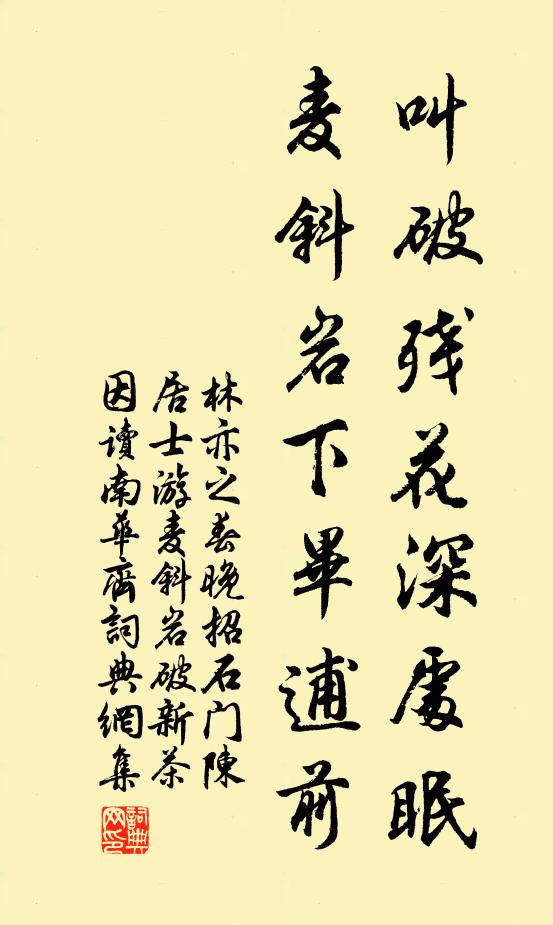 叫破残花深處眠
麦斜岩下畢逋前
林亦之春晚招石门陳
居士游麦斜岩破新茶
因讀南华齋詞典網集
詞典
网印